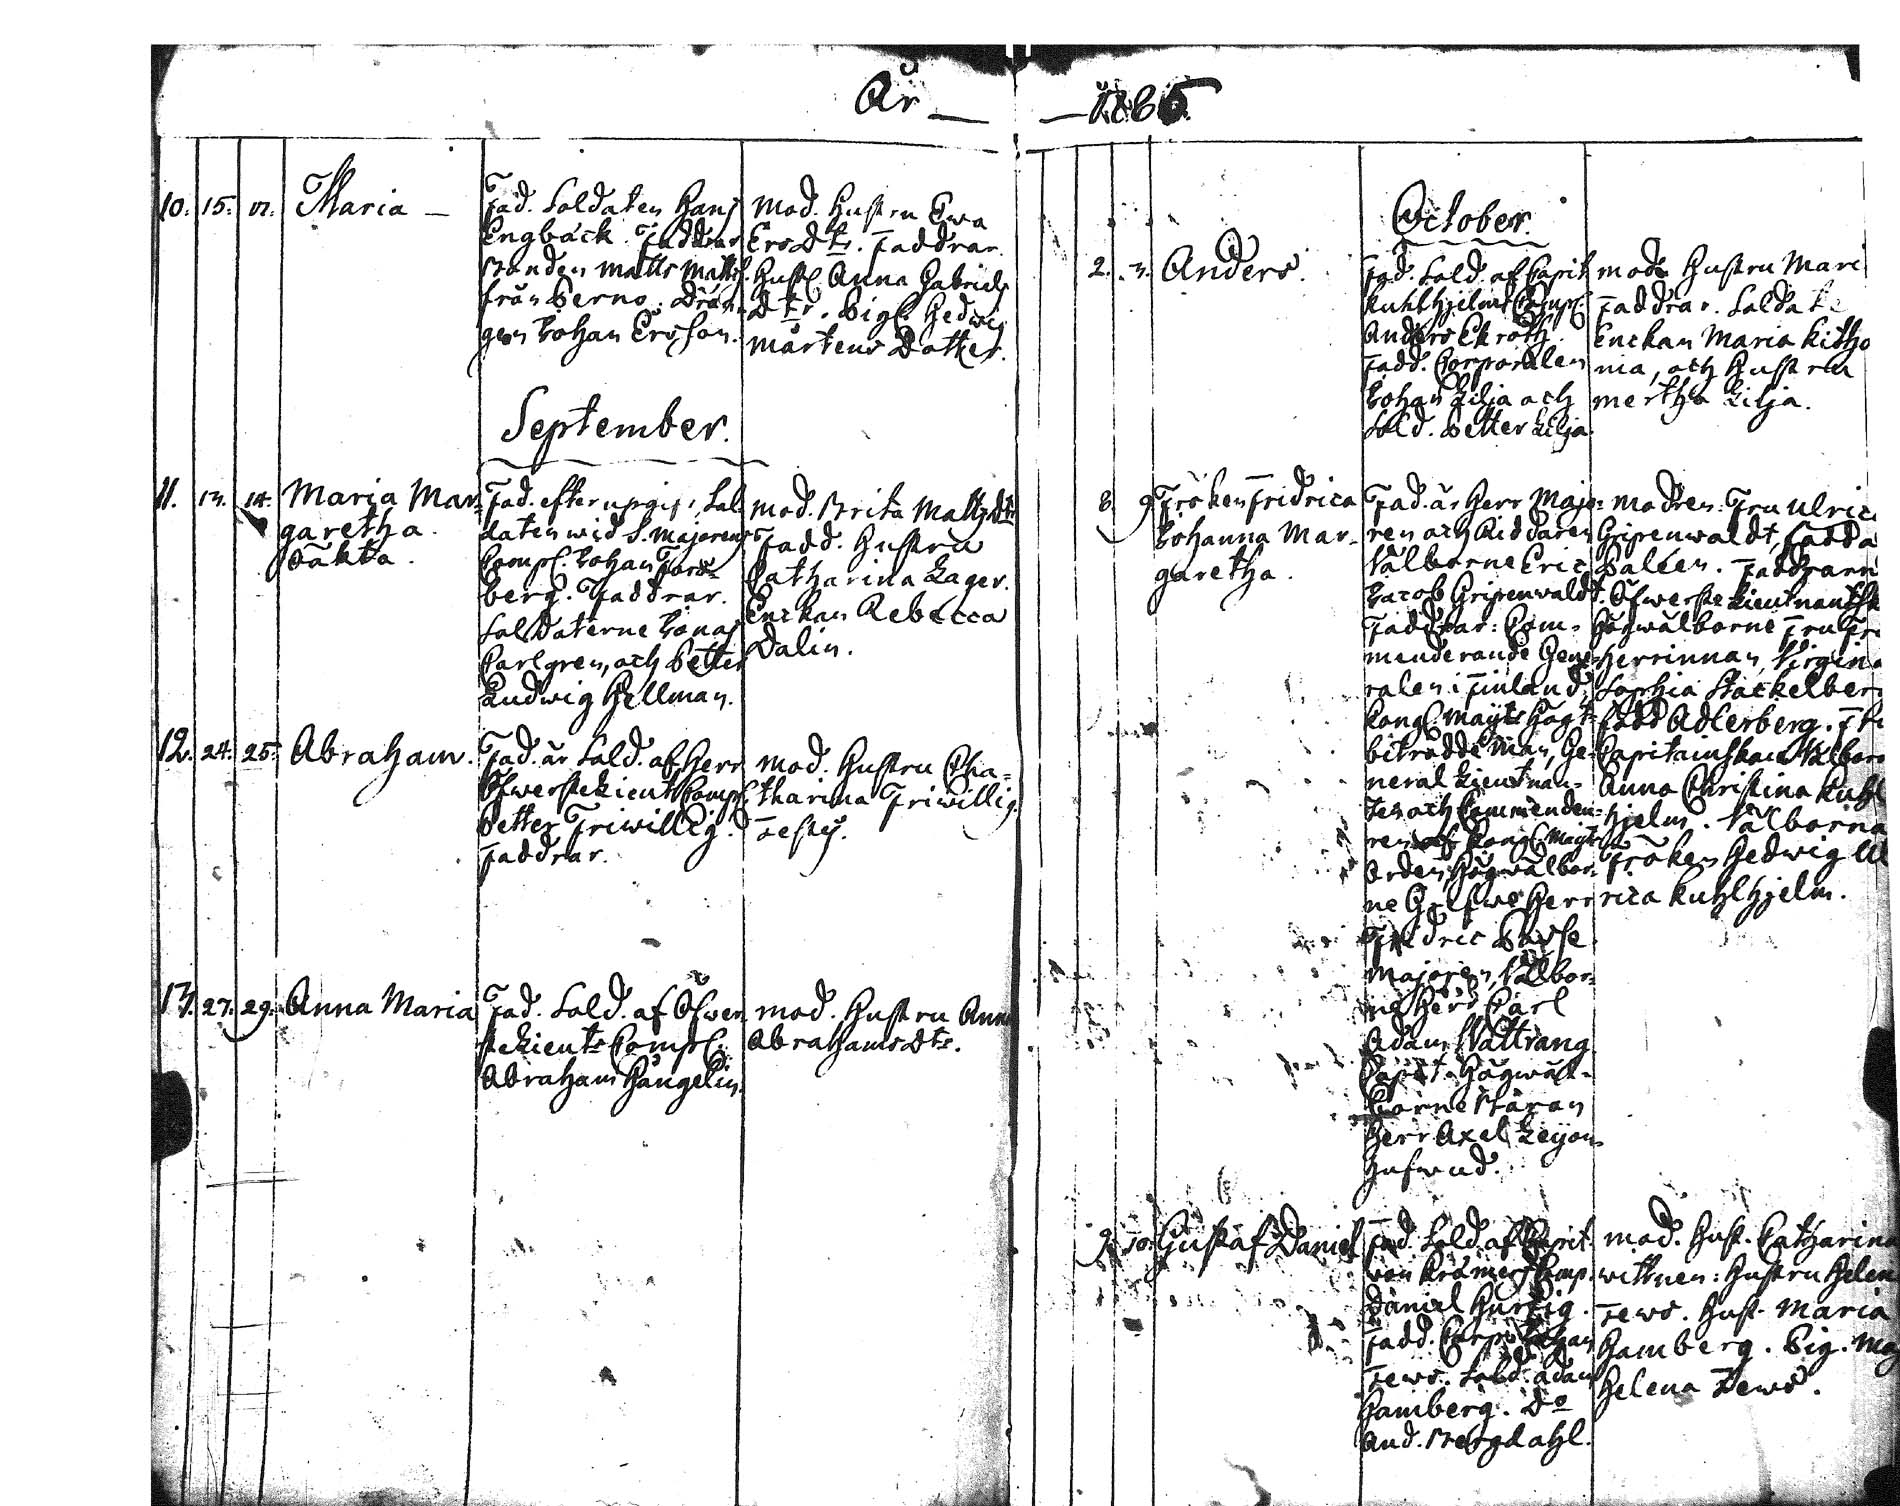 År — — 1786
10. 15. 17. Maria —
Fad. Soldaten Hans
Engbäck. Faddrar
Bonden Matts Matts.
från Perno. Drän-
gen Johan Ersson.
Mod. Hustru Ewa
Ersdtr. Faddrar.
Hust. Anna Gabriels
Dtr. Pig. Hedwig
Mårtens Dotter.
September.
11. 13. 14. Maria Mar-
garetha.
oäkta.
Fad. efter upgift: Sol-
daten wid S. Majorens
Comp. Johan Fors-
berg. Faddrar.
Soldaterne Jonas
Carlgren, och Petter
Ludwig Hellman.
Mod. Brita Mattsdtr
Fadd. Hustru
Catharina Lager.
Enckan Rebecca
Dalin.
12. 24. 25. Abraham.
Fad. är Sold. af Herr
Öfwerste Lieut. Comp.
Petter Friwillig.
Faddrar.
Mod. Hustru Cha-
tharina Friwillig
Testes.
13. 27. 29. Anna Maria
Fad. Sold. af Öfwer
ste Lieuts Comp.
Abraham Hängelin.
Mod. Hustru Anna
Abrahamsdtr.
October.
2. 3. Anders.
Fad. Sold. af Capit
Kuhlhjelms Comp.
Anders Ekroth.
Fadd. Corporalen
Johan Lilja och
Sold. Petter Lilja
Mod. Hustru Mari
Faddrar. Soldate
Enckan Maria Kitho
nia, och Hustru
Mertha Lilja.
8. 9. Fröken Fridrica
Johanna Mar-
garetha.
Fad. är Herr Majo-
ren och Riddaren
Wälborne Eric
Jacob Gripenwaldt
Faddrar: Com-
menderande Gene-
ralen i Finland,
Kongl. Mayts Högt-
betrodde Man, Ge-
neral Lieutnan-
ten och Commendeu-
ren af Kongl. Mayts
Orden, Högwälbor-
ne Grefwe Herr
Fridric Posse
Majoren, Wälbor-
ne Herr Carl
Adam Wattrang
Capit. Högwäl-
borne Baron
Herr Axel Leijon-
hufwud.
Modren: Fru Ulrica
Gripenwaldt, född
Paléen. Faddrarn
Öfwerste Lieutnantsk
Högwälborne Fru Fri
Herrinnan, Virgina
Sophia Stackelberg
född Adlerberg. Fru
Capitainskan Wälborn
Anna Christina Kuhl
hjelm. Wälborna
Fröken Hedwig Ul
rica Kuhlhjelm.
9. 10. Gustaf Daniel
Fad. Sold. af Capit.
von Kræmers Comp.
Daniel Hurtig.
Fadd. Corp. Johan
Tews. Sold. Adam
Hamberg. Do
And. Bergdahl.
Mod. Hust. Catharina
Wittnen: Hustru Helen
Tews. Hust. Maria
Hamberg. Pig. Mag
Helena Tews.